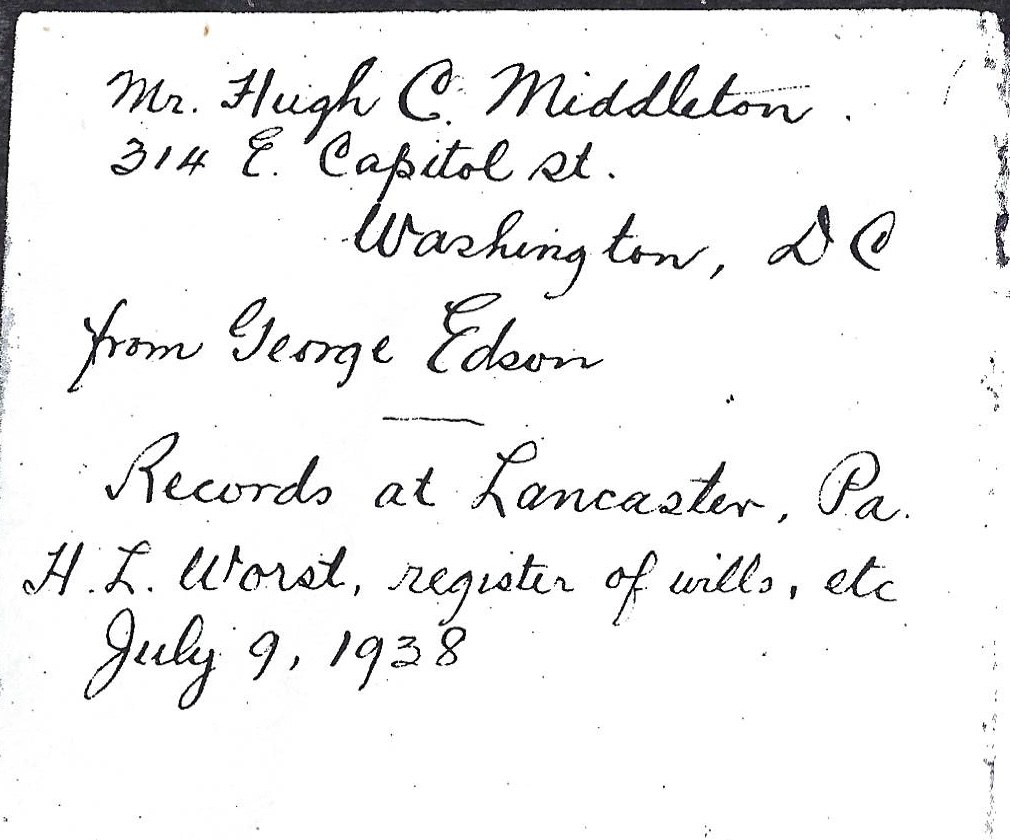 Mr. Hugh C. Middleton.
314 E. Capitol st.
Washington, D C
from George Edson
Records at Lancaster, Pa.
H. L. Worst, register of wills, etc
July 9, 1938